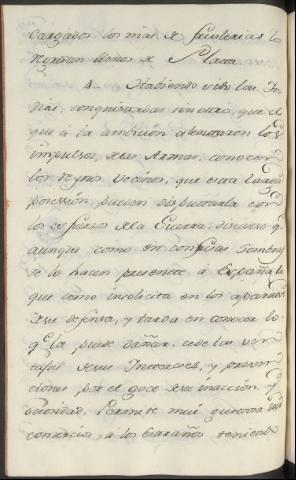 cargados los mas de fruslerias los
tornan llenos de Plata.
4. Habiendo sido las In
dias, conquistadas sin otro, que el
que á la ambicion alentaron los
impulsos, de las Armas, conocen
los Reynos vecinos, que esta
posesion, pueden disputarla con
los esfuerzos de la Guerra, discurso q.
aunque como en confusas Sombras
se lo hacen presente á España
que como insolicita en los aparatos
de su defensa, y tarda en conocer lo
q.e la puede dañar, cede las ven
tajas de sus Intereses, y preven
ciones por el goce de su inaccion, y
ociosidad. Permite mui gustosa sus
comercios, á los Estraños, teniendo